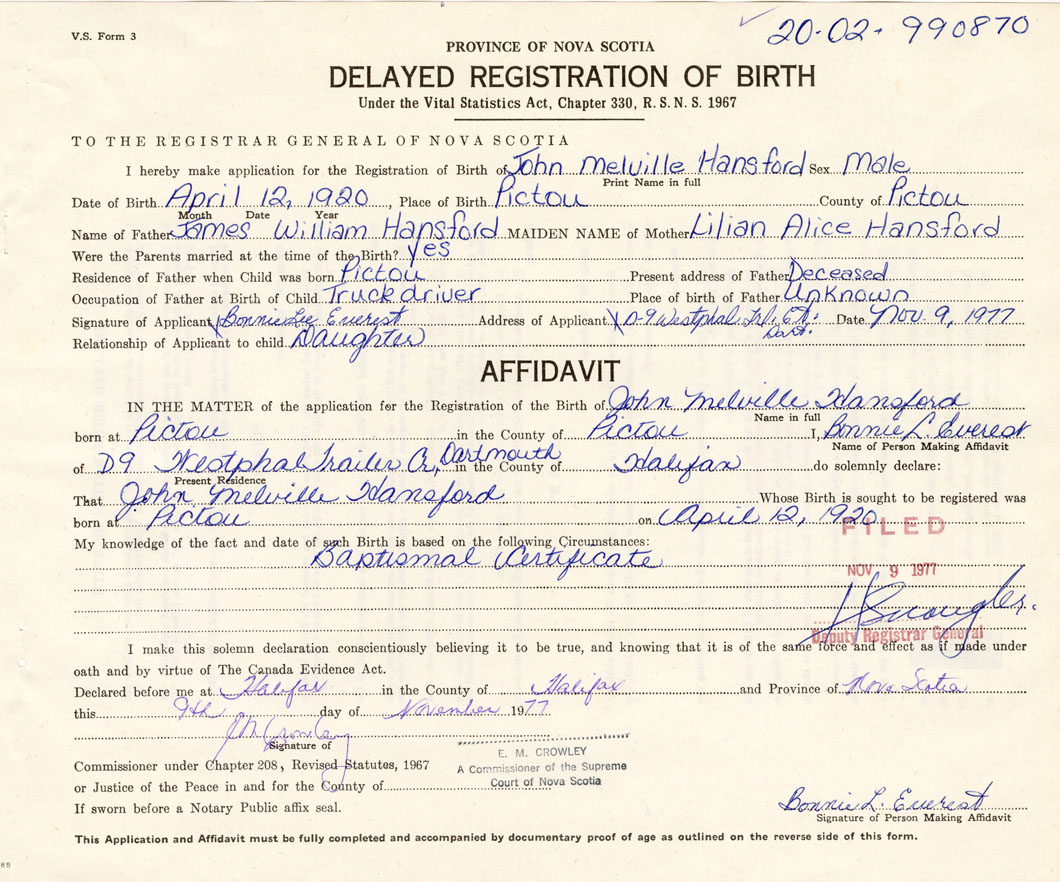 V.S. Form 3
20-02-990870
PROVINCE OF NOVA SCOTIA
DELAYED REGISTRATION OF BIRTH
Under the Vital Statistics Act, Chapter 330, R.S.N.S. 1967
TO THE REGISTRAR GENERAL OF NOVA SCOTIA
I hereby make application for the Registration of Birth of John Melville Hansford Sex Male
Print Name in full
Date of Birth April 12, 1920, Place of Birth Pictou County of Pictou
Month Date Year
Name of Father James William Hansford MAIDEN NAME of Mother Lilian Alice Hansford
Were the Parents married at the time of the Birth? Yes
Residence of Father when Child was born Pictou Present address of Father Deceased
Occupation of Father at Birth of Child Truck driver Place of birth of Father Unknown
Signature of Applicant X Bonnie Lee Everest Address of Applicant X D-9 Westphal Trl. Ct. Date Nov. 9, 1977
Dart.
Relationship of Applicant to child Daughter
AFFIDAVIT
IN THE MATTER of the application for the Registration of the Birth of John Melville Hansford
Name in full
born at Pictou in the County of Pictou I, Bonnie L. Everest
Name of Person Making Affidavit
of D9 Westphal Trailer Ct, Dartmouth in the County of Halifax do solemnly declare:
Present Residence
That John Melville Hansford Whose Birth is sought to be registered was
born at Pictou on April 12, 1920
FILED
My knowledge of the fact and date of such Birth is based on the following Circumstances:
Baptismal Certificate
NOV 9 1977
Deputy Registrar General
I make this solemn declaration conscientiously believing it to be true, and knowing that it is of the same force and effect as if made under
oath and by virtue of The Canada Evidence Act.
Declared before me at Halifax in the County of Halifax and Province of Nova Scotia
this 9th day of November 1977
Signature of
E. M. CROWLEY
A Commissioner of the Supreme
Court of Nova Scotia
Commissioner under Chapter 208, Revised Statutes, 1967
or Justice of the Peace in and for the County of
If sworn before a Notary Public affix seal.
Bonnie L. Everest
Signature of Person Making Affidavit
This Application and Affidavit must be fully completed and accompanied by documentary proof of age as outlined on the reverse side of this form.
85